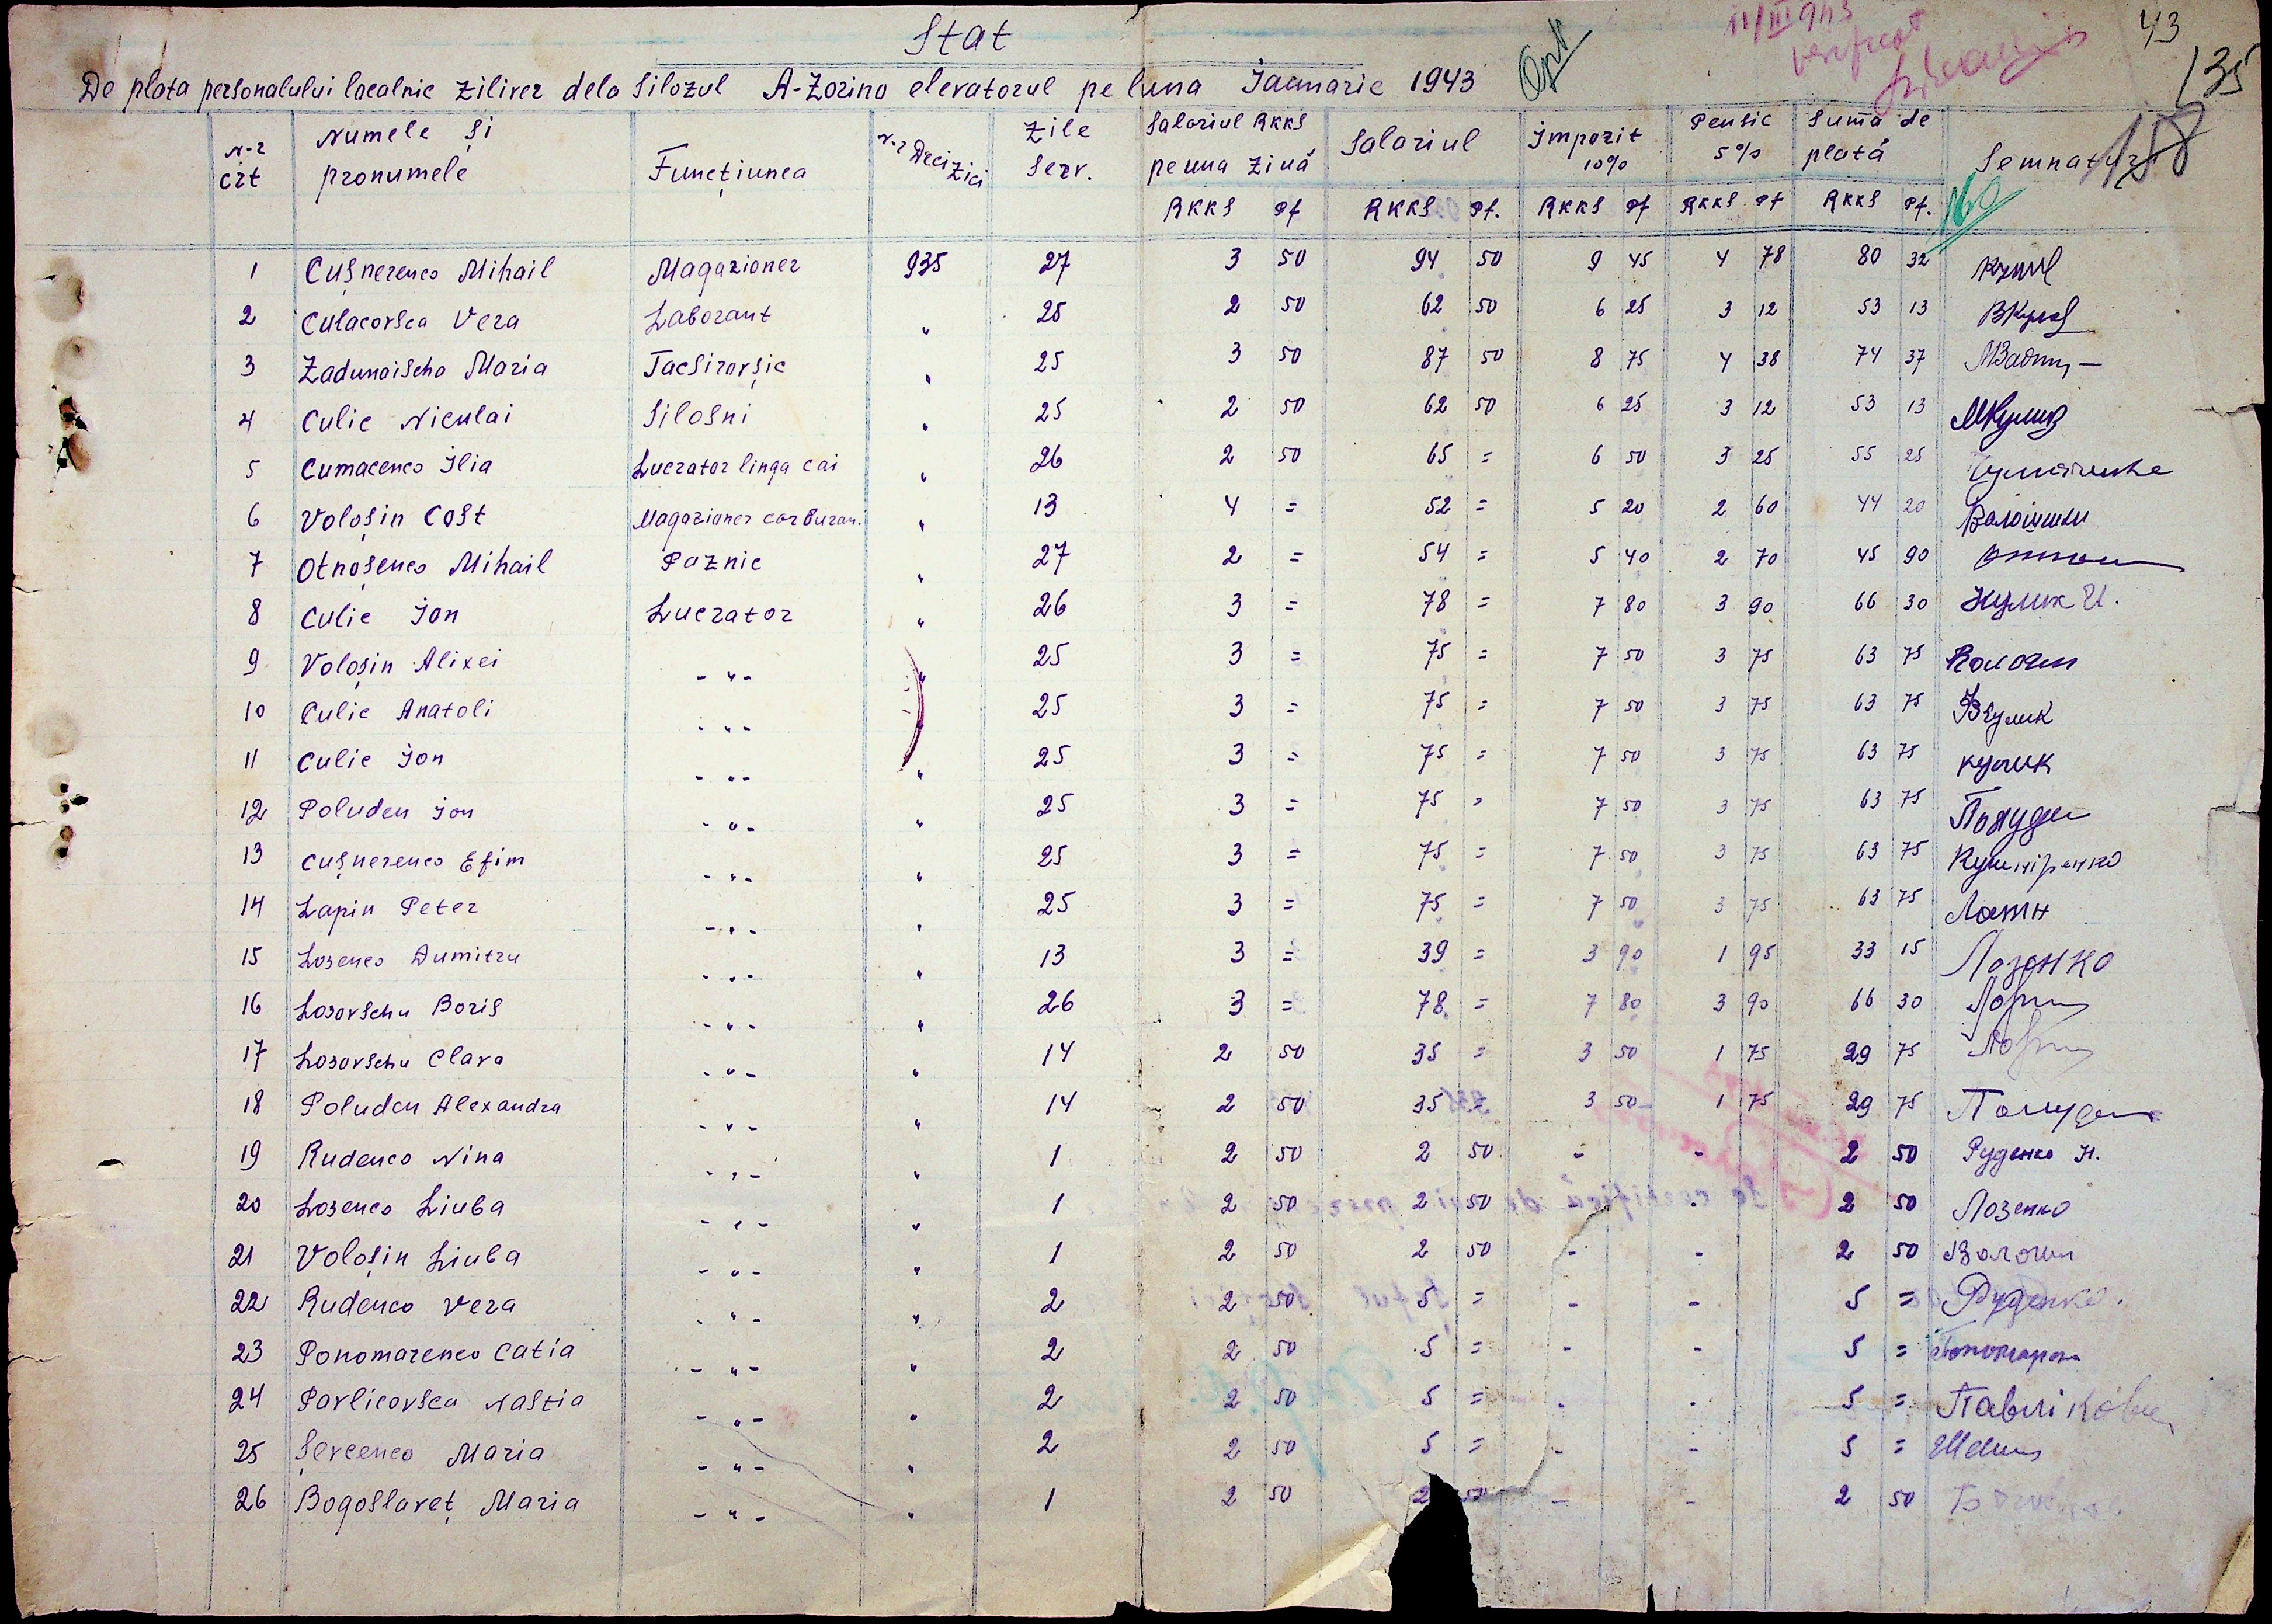 Stat
De plata personalului localnic zilirez dela Silozul A-Zorino elevatorul pe luna Januarie 1943
11/III 943
verificat
43
135
158
160
N-r crt | Numele și pronumele | Funcțiunea | N-r Decizici | Zile Serv. | Salariul RKKS pe una ziuă | Salariul | Impozit 10% | Pensie 5% | Suma de plată | Semnatura
RKKS Pf | RKKS Pf. | RKKS Pf | RKKS Pf | RKKS Pf.
1 Cușnerenco Mihail Magazioner 935 27 3 50 94 50 9 45 4 78 80 32
2 Culacovsca Vera Laborant " 25 2 50 62 50 6 25 3 12 53 13 ВКулаб
3 Zadunaischa Maria Tacsirovșic " 25 3 50 87 50 8 75 4 38 74 37
4 Culic Niculai Silosni " 25 2 50 62 50 6 25 3 12 53 13
5 Cumacenco Ilia Lucrator linga cai " 26 2 50 65 = 6 50 3 25 55 25
6 Voloșin Cost Magazioner carburan. " 13 4 = 52 = 5 20 2 60 44 20 Волошин
7 Otnoșenco Mihail Paznic " 27 2 = 54 = 5 40 2 70 45 90
8 Culic Jon Lucrator " 26 3 = 78 = 7 80 3 90 66 30 Кулик И.
9 Voloșin Alixei - " - " 25 3 = 75 = 7 50 3 75 63 75 Волошин
10 Culic Anatoli - " - " 25 3 = 75 = 7 50 3 75 63 75 Кулик
11 Culic Jon - " - " 25 3 = 75 = 7 50 3 75 63 75 кулик
12 Poluden Jon - " - " 25 3 = 75 = 7 50 3 75 63 75 Полуден
13 Cușnerenco Efim - " - " 25 3 = 75 = 7 50 3 75 63 75 Кушніренко
14 Lapin Peter - " - " 25 3 = 75 = 7 50 3 75 63 75 Лапин
15 Losenco Dumitru - " - " 13 3 = 39 = 3 90 1 95 33 15 Лозенко
16 Losovschu Boris - " - " 26 3 = 78 = 7 80 3 90 66 30
17 Losovschu Clara - " - " 14 2 50 35 = 3 50 1 75 29 75
18 Poluden Alexandra - " - " 14 2 50 35 = 3 50 1 75 29 75 Полуден
19 Rudenco Nina - " - " 1 2 50 2 50 - - 2 50 Руденко Н.
20 Losenco Liuba - " - " 1 2 50 2 50 - - 2 50 Лозенко
21 Voloșin Liuba - " - " 1 2 50 2 50 - - 2 50 Волошин
22 Rudenco Vera - " - " 2 2 50 5 = - - 5 = Руденко.
23 Ponomarenco Catia - " - " 2 2 50 5 = - - 5 = Пономарен
24 Pavlicovsca Nastia - " - " 2 2 50 5 = - - 5 = Павліковс
25 Șevcenco Maria - " - " 2 2 50 5 = - - 5 =
26 Bogoslaveț Maria - " - " 1 2 50 2 50 - - 2 50